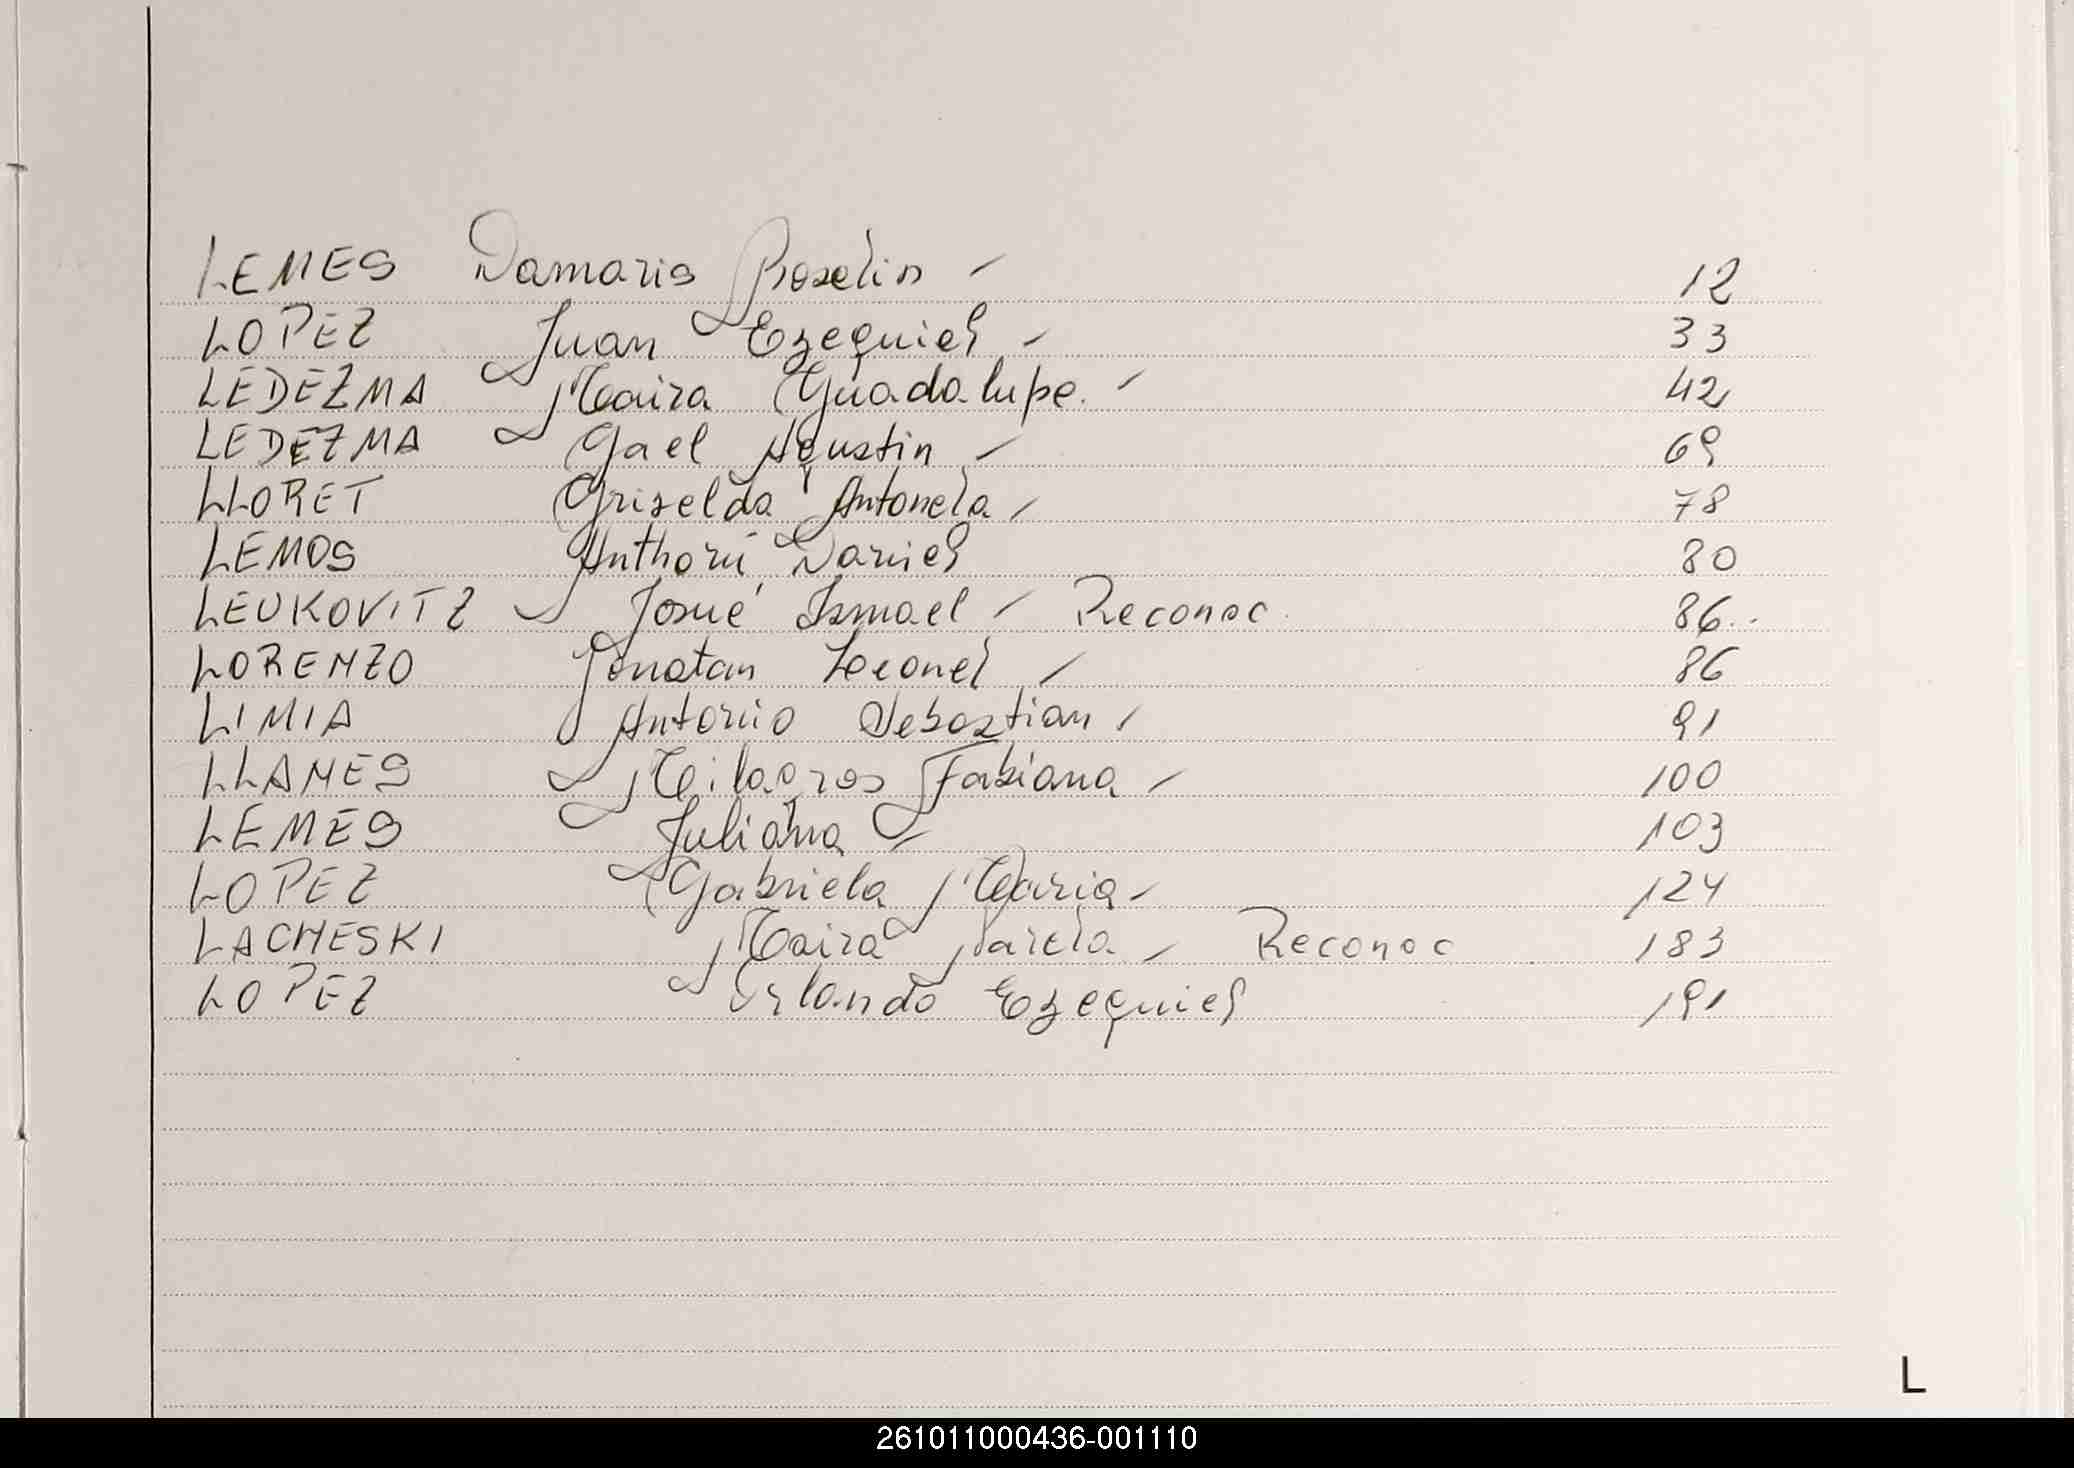 LEMES Damaris Roselin - 12
LOPEZ Juan Ezequiel - 33
LEDEZMA Maira Guadalupe. - 42
LEDEZMA Gael Agustin - 69
LLORET Griselda Antonela - 78
LEMOS Anthoni Daniel 80
LEUKOVITZ Josué Ismael - Reconoc. 86..
LORENZO Jonatan Leonel - 86
LIMIA Antonio Sebastian - 91
LLAMES Milagros Fabiana - 100
LEMES Juliana - 103
LOPEZ Gabriela Maria - 124
LACHESKI Maira - Reconoc 183
LOPEZ Orlando Ezequiel 191
L
261011000436-001110